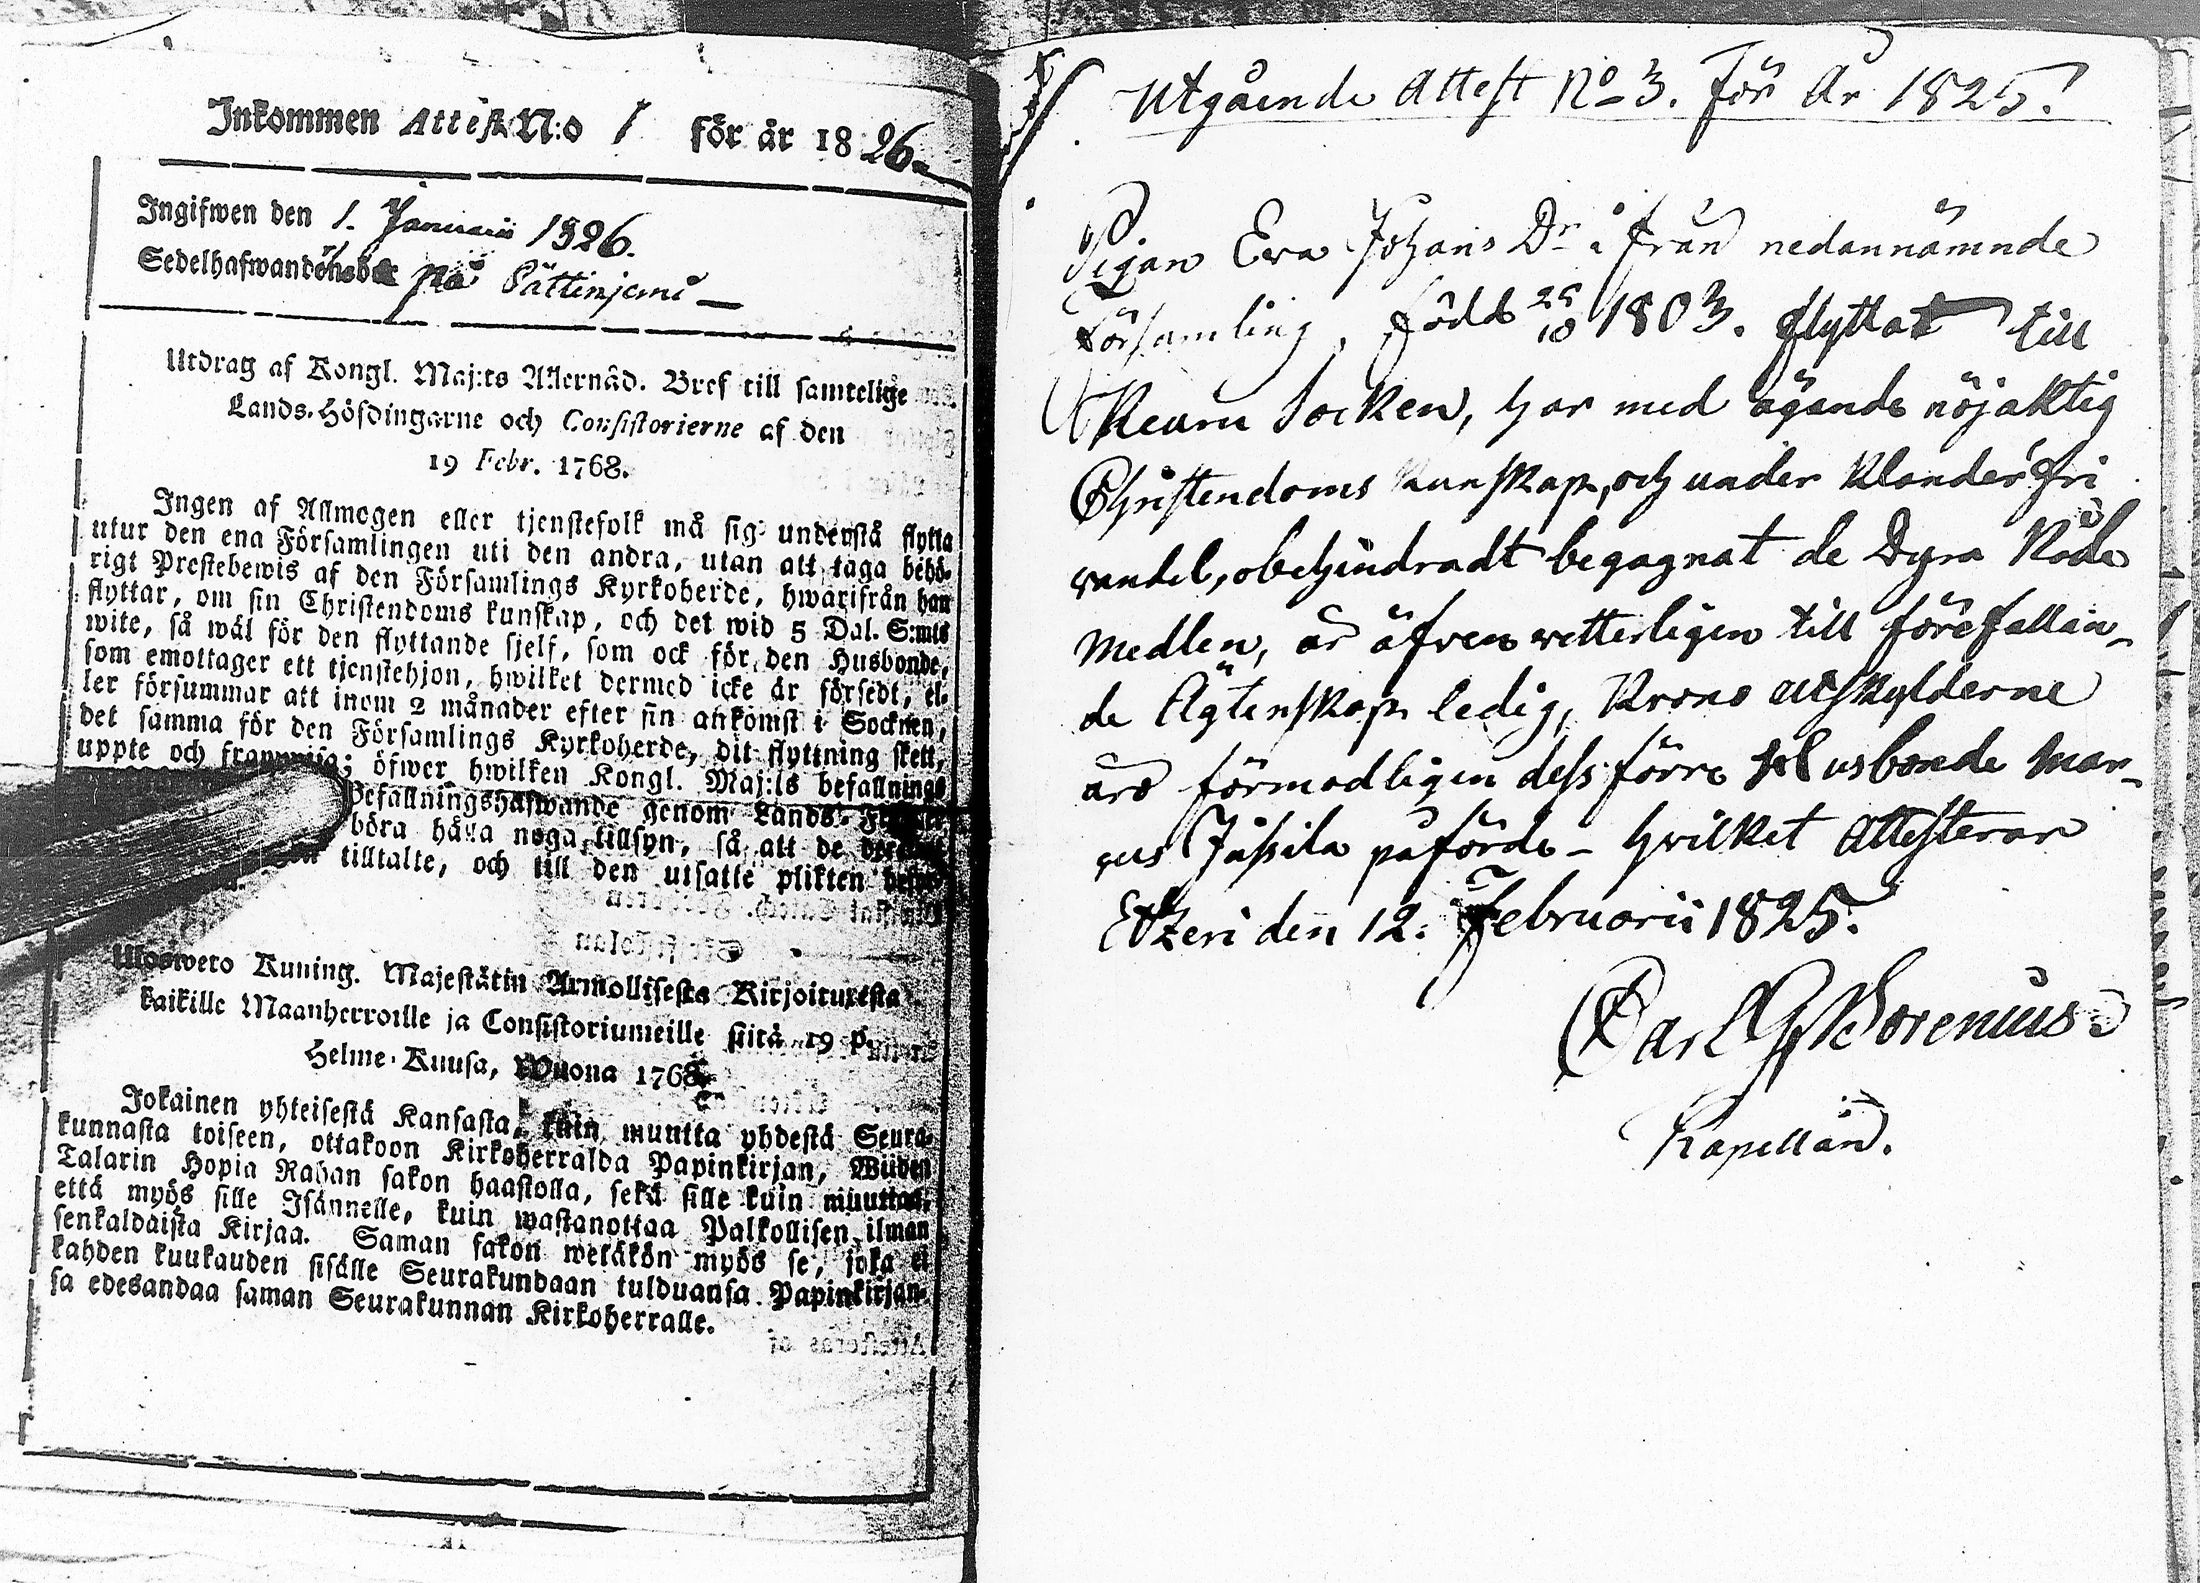 Inkommen Attest N:o 1 för år 1826.
Ingifwen den 1. Januarii 1826.
Sedelhafwanden på Pättinjemi
Utdrag af Kongl. Maj:ts Allernåd. Bref till samtelige
Lands-Höfdingarne och Consistorierne af den
19 Febr. 1768.
Ingen af Allmogen eller tjenstefolk må sig understå flytta
utur den ena Församlingen uti den andra, utan att taga behö-
rigt Prestebewis af den Församlings Kyrkoherde, hwarifrån han
flyttar, om sin Christendoms kunskap, och det wid 5 Dal. S:mts
wite, så wäl för den flyttande sjelf, som ock för den Husbonde,
som emottager ett tjenstehjon, hwilket dermed icke är försedt, el-
ler försummar att inom 2 månader efter sin ankomst i Socknen,
det samma för den Församlings Kyrkoherde, dit flyttning skett,
uppte och framwisa; öfwer hwilken Kongl. Maj:ts befallnings
Befallningshafwande genom Lands-
böra hålla noga tillsyn, så att de
tilltalte, och till den utsatte plikten
Uloswero Kuning. Majestätin Armollisesta Kirjoituxesta
kaikille Maanherroille ja Consistoriumeille siitä 19 p.
Helme-Kuusa, Wuona 1768.
Jokainen yhteisestä Kansasta, kuin muutta yhdestä Seura-
kunnasta toiseen, ottakoon Kirkoherralda Papinkirjan, Wiiden
Talarin Hopia Rahan sakon haastolla, sekä sille kuin muuttaa,
että myös sille Isännelle, kuin wastanottaa Palkollisen ilman
senkaldaista Kirjaa. Saman sakon wetäkön myös se, joka ei
kahden kuukauden sisälle Seurakundaan tulduansa Papinkirjan-
sa edesandaa saman Seurakunnan Kirkoherralle.
Utgående Attest No 3. för År 1825.
Pigan Eva Johans Dr ifrån nedannämnde
Församling, född 25/10 1803. flyttat till
Keuru Socken, har med ägande nöjaktig
Christendoms kunskap, och under klanderfri
vandel, obehindradt begagnat de Dyra Nåde
medlen, är äfven vetterligen till förefallan-
de Ägtenskap ledig, Krono utskylderne
äro förmodligen dess förre Husbonde Mar-
cus Jussila påförde – hvilket Attesterar
Etzeri den 12. Februarii 1825.
Carl G. Borenius
Kapellan.